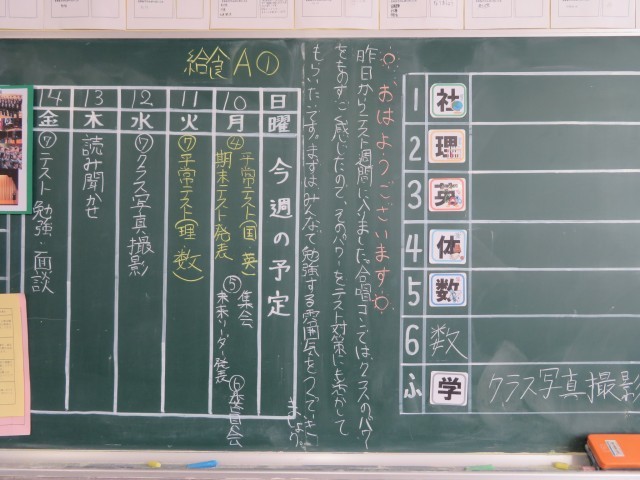 給食A①
おはようございます
昨日からテスト週間に入りました。合唱コンではクラスのパワー
をものすごく感じたので、そのパワーをテスト対策にも活かして
もらいたいです。まずはみんなで勉強する雰囲気をつくっていき
ましょう。
今週の予定
日 曜
10 月 ④平常テスト(国 英)
期末テスト発表
⑤集会
未来リーダー発表
⑥委員会
11 火 ⑦平常テスト(理 数)
12 水 ⑦クラス写真撮影
13 木 読み聞かせ
14 金 ⑦テスト勉強・面談
1 社
2 理
3 英
4 体
5 数
6 数
ふ 学 クラス写真撮影